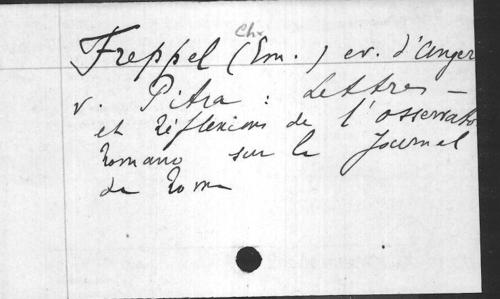 Freppel (Ch. Em.) ev. d'Anger
v. Pitra : Lettres —
et Réflexions de l'osservato
Romano sur le Journal
de Rome